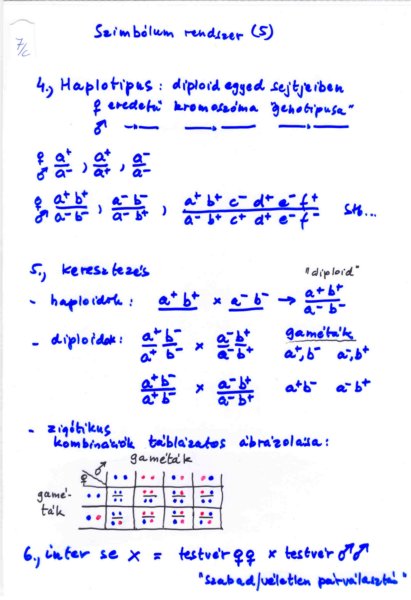 7/c
Szimbólum rendszer (5)
4., Haplotípus : diploid egyed sejtjeiben
♀ eredetű kromoszóma "genotípusa"
♂
♀ a⁺ , a⁺ , a⁻
♂ a⁻ a⁺ a⁻
♀ a⁺ b⁺ , a⁻ b⁻ , a⁺ b⁺ c⁻ d⁺ e⁻ f⁺ stb...
♂ a⁻ b⁻ a⁻ b⁺ a⁻ b⁺ c⁺ d⁺ e⁻ f⁻
5., keresztezés
"diploid"
- haploidok : a⁺ b⁺ × a⁻ b⁻ → a⁺ b⁺
a⁻ b⁻
- diploidok : a⁺ b⁻ × a⁻ b⁺ gaméták
a⁺ b⁻ a⁻ b⁺ a⁺,b⁻ a⁻,b⁺
a⁺b⁻ × a⁻b⁺ a⁺b⁻ a⁻b⁺
a⁺b⁻ a⁻b⁺
- zigótikus
kombinációk táblázatos ábrázolása :
gaméták
♀ ♂
gamé-
ták
6., inter se × = testvér ♀♀ × testvér ♂♂
"szabad/véletlen párválasztás"